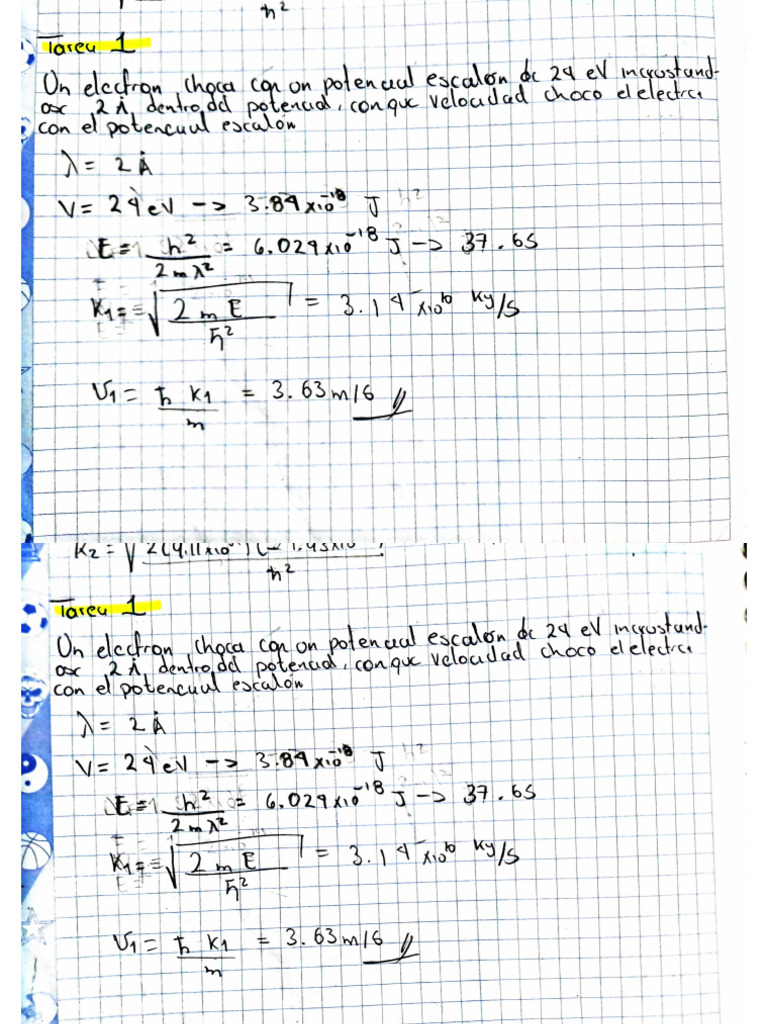 ħ²
Tarea 1
Un electron, choca con un potencial escalón de 24 eV incrustand-
ose 2 Å dentro del potencial, con que velocidad choco el electro
con el potencial escalón
λ = 2 Å
V = 24 eV -> 3.84 x10⁻¹⁸ J
E = h² / 2mλ² = 6.024x10⁻¹⁸ J -> 37.65
K₁ = √(2mE / ħ²) = 3.14 x10¹⁰ Kg/s
V₁ = ħ K₁ / m = 3.63 m/6
K₂ = √
ħ²
Tarea 1
Un electron, choca con un potencial escalón de 24 eV incrustand-
ose 2 Å dentro del potencial, con que velocidad choco el electro
con el potencial escalón
λ = 2 Å
V = 24 eV -> 3.84 x10⁻¹⁸ J
E = h² / 2mλ² = 6.024x10⁻¹⁸ J -> 37.65
K₁ = √(2mE / ħ²) = 3.14 x10¹⁰ Kg/s
V₁ = ħ K₁ / m = 3.63 m/6